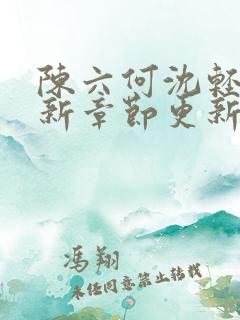 陳六何沈輕
新章節更新
馮翔
未经同意禁止转载